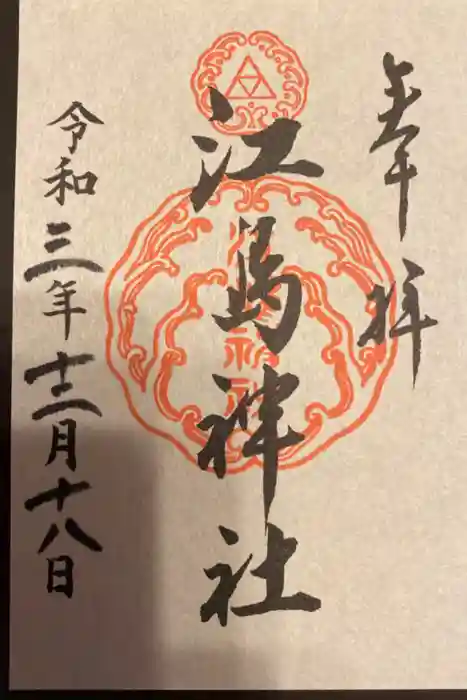 奉拝
江島神社
令和三年十二月十八日